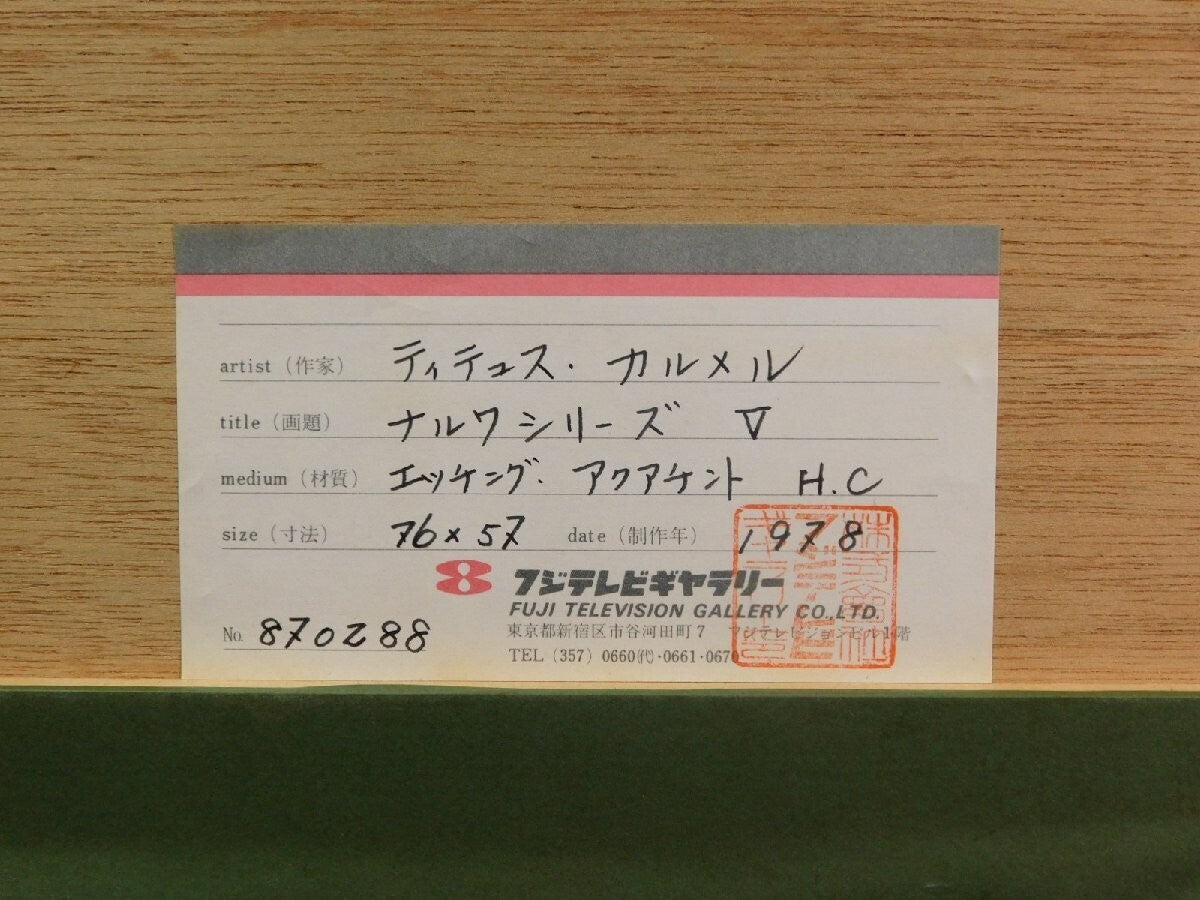 artist（作家） ティテュス・カルメル
title（画題） ナルワシリーズ V
medium（材質） エッケング・アクアケント H.C
size（寸法） 76×57 date（制作年） 1978
フジテレビギャラリー
FUJI TELEVISION GALLERY CO.,LTD.
東京都新宿区市谷河田町7 フジテレビジョンビル1階
No. 870288
TEL (357) 0660(代)・0661・0670